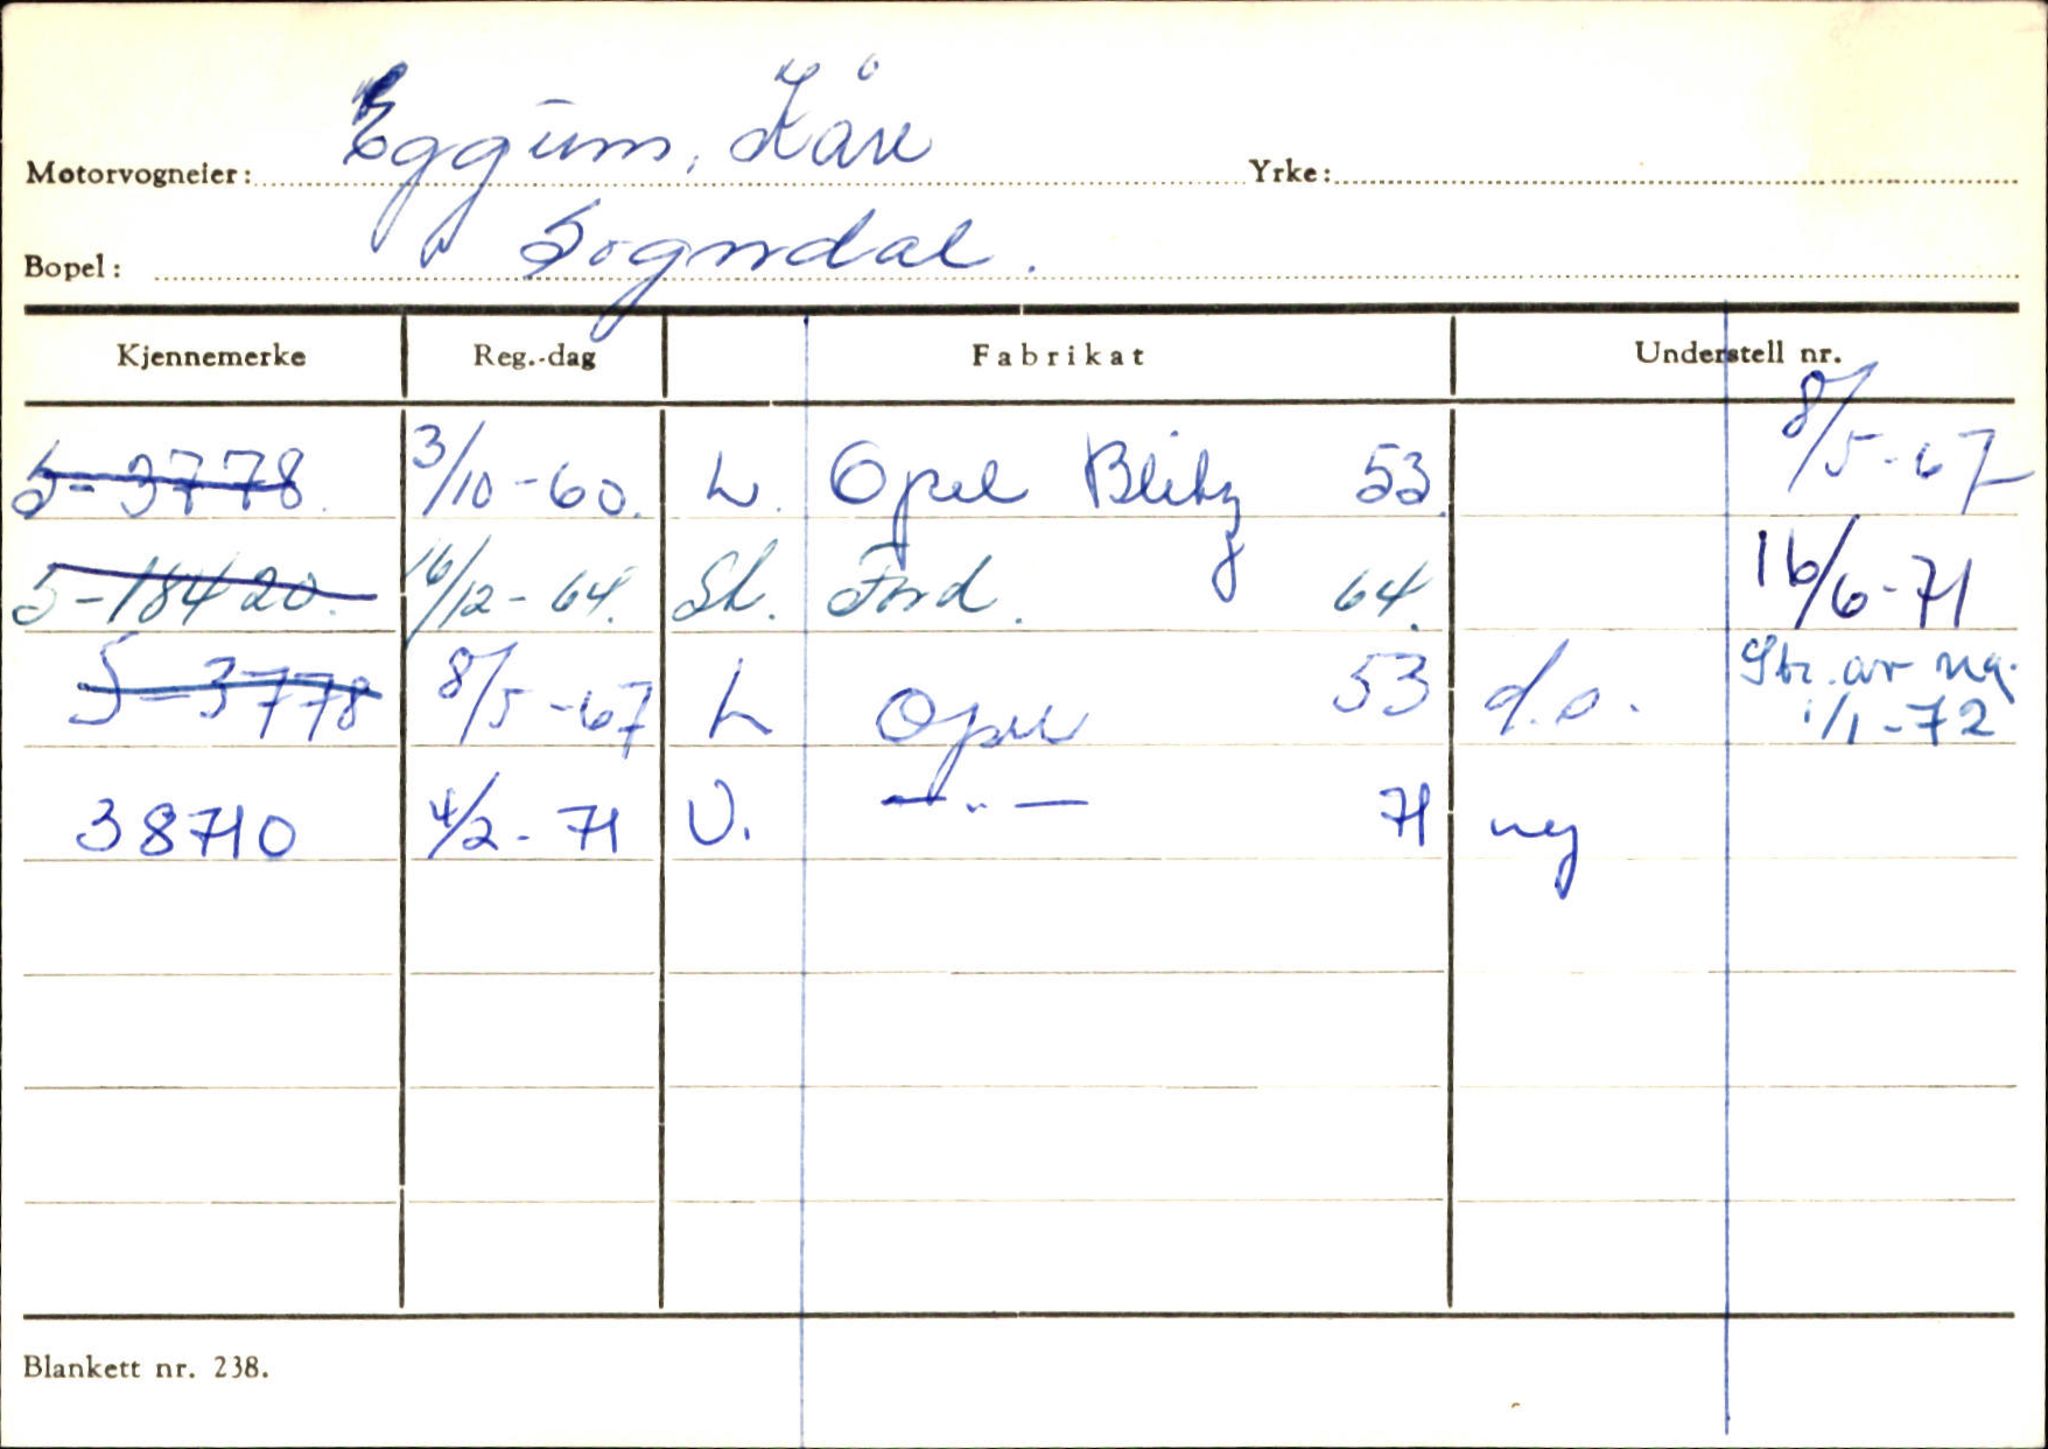 Motorvogneier: Eggum, Kåre Yrke:
Bopel: Sogndal.
Kjennemerke Reg.-dag Fabrikat Understell nr.
S-3778. 3/10-60. L. Opel Blitz 53. 8/5-67
S-18420. 16/12-64. St. Ford. 64. 16/6-71
S-3778 8/5-67 L Opel 53 d.o. Str. av reg. 1/1-72
38710 4/2-71 V. —"— 71 ny
Blankett nr. 238.